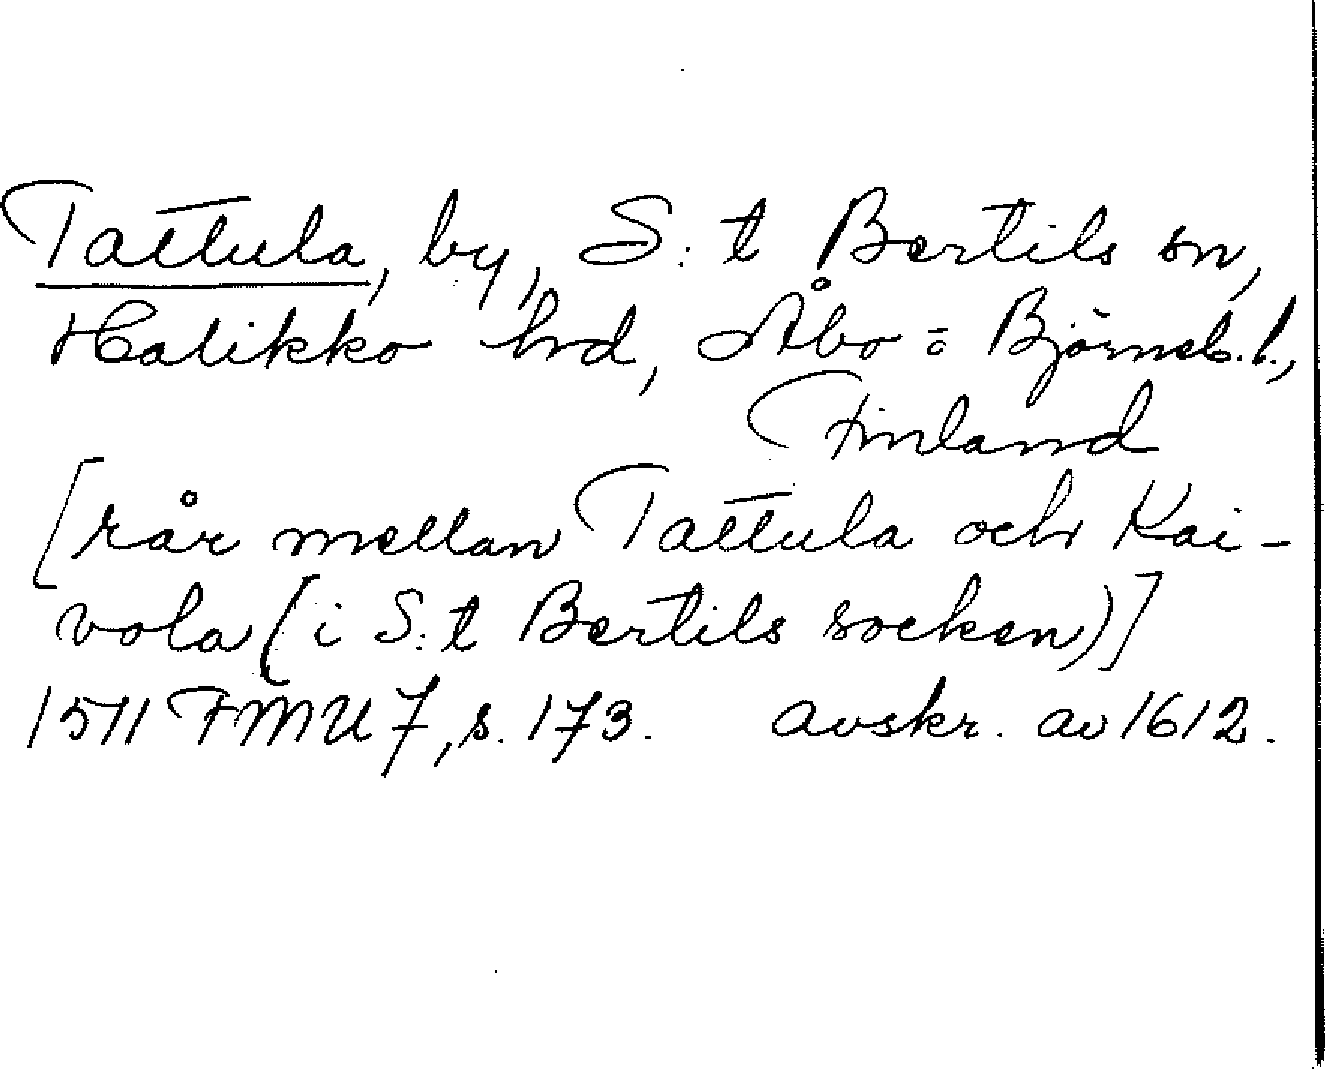 Tattula, by, S:t Bertils sn,
Halikko hd, Åbo=Björneb. l.,
Finland
[rår mellan Tattula och Kai-
vola (i S:t Bertils socken)]
1511 FMU 7, s. 173. avskr. av 1612.